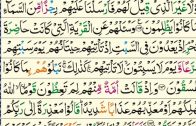 غَيْرَ الَّذِي قِيلَ لَهُمْ فَأَرْسَلْنَا عَلَيْهِمْ رِجْزًا مِّنَ السَّ
كَانُوا يَظْلِمُونَ وَسْئَلْهُمْ عَنِ الْقَرْيَةِ الَّتِي كَانَتْ حَاضِرَةَ
إِذْ يَعْدُونَ فِي السَّبْتِ إِذْ تَأْتِيهِمْ حِيتَانُهُمْ يَوْمَ
شُرَّعًا وَيَوْمَ لَا يَسْبِتُونَ لَا تَأْتِيهِمْ كَذَلِكَ نَبْلُوهُم بِمَا كَانُوا
وَإِذْ قَالَتْ أُمَّةٌ مِّنْهُمْ لِمَ تَعِظُونَ قَوْمًا اللَّهُ
مُهْلِكُهُمْ أَوْ مُعَذِّبُهُمْ عَذَابًا شَدِيدًا قَالُوا مَعْذِرَةً إِلَى رَبِّكُمْ